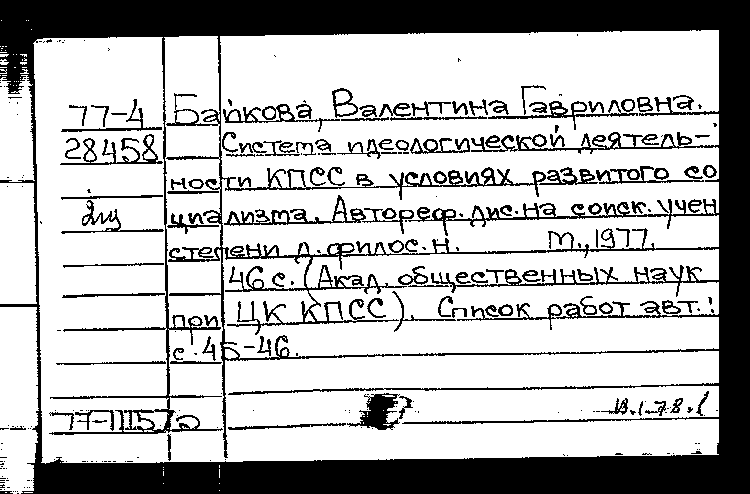 77-4 Байкова, Валентина Гавриловна.
28458 Система идеологической деятель-
ности КПСС в условиях развитого со
циализма. Автореф. дис. на соиск. учен
степени д. филос. н. М., 1977.
46 с. (Акад. общественных наук
при ЦК КПСС). Список работ авт.:
с. 45-46.
77-11157